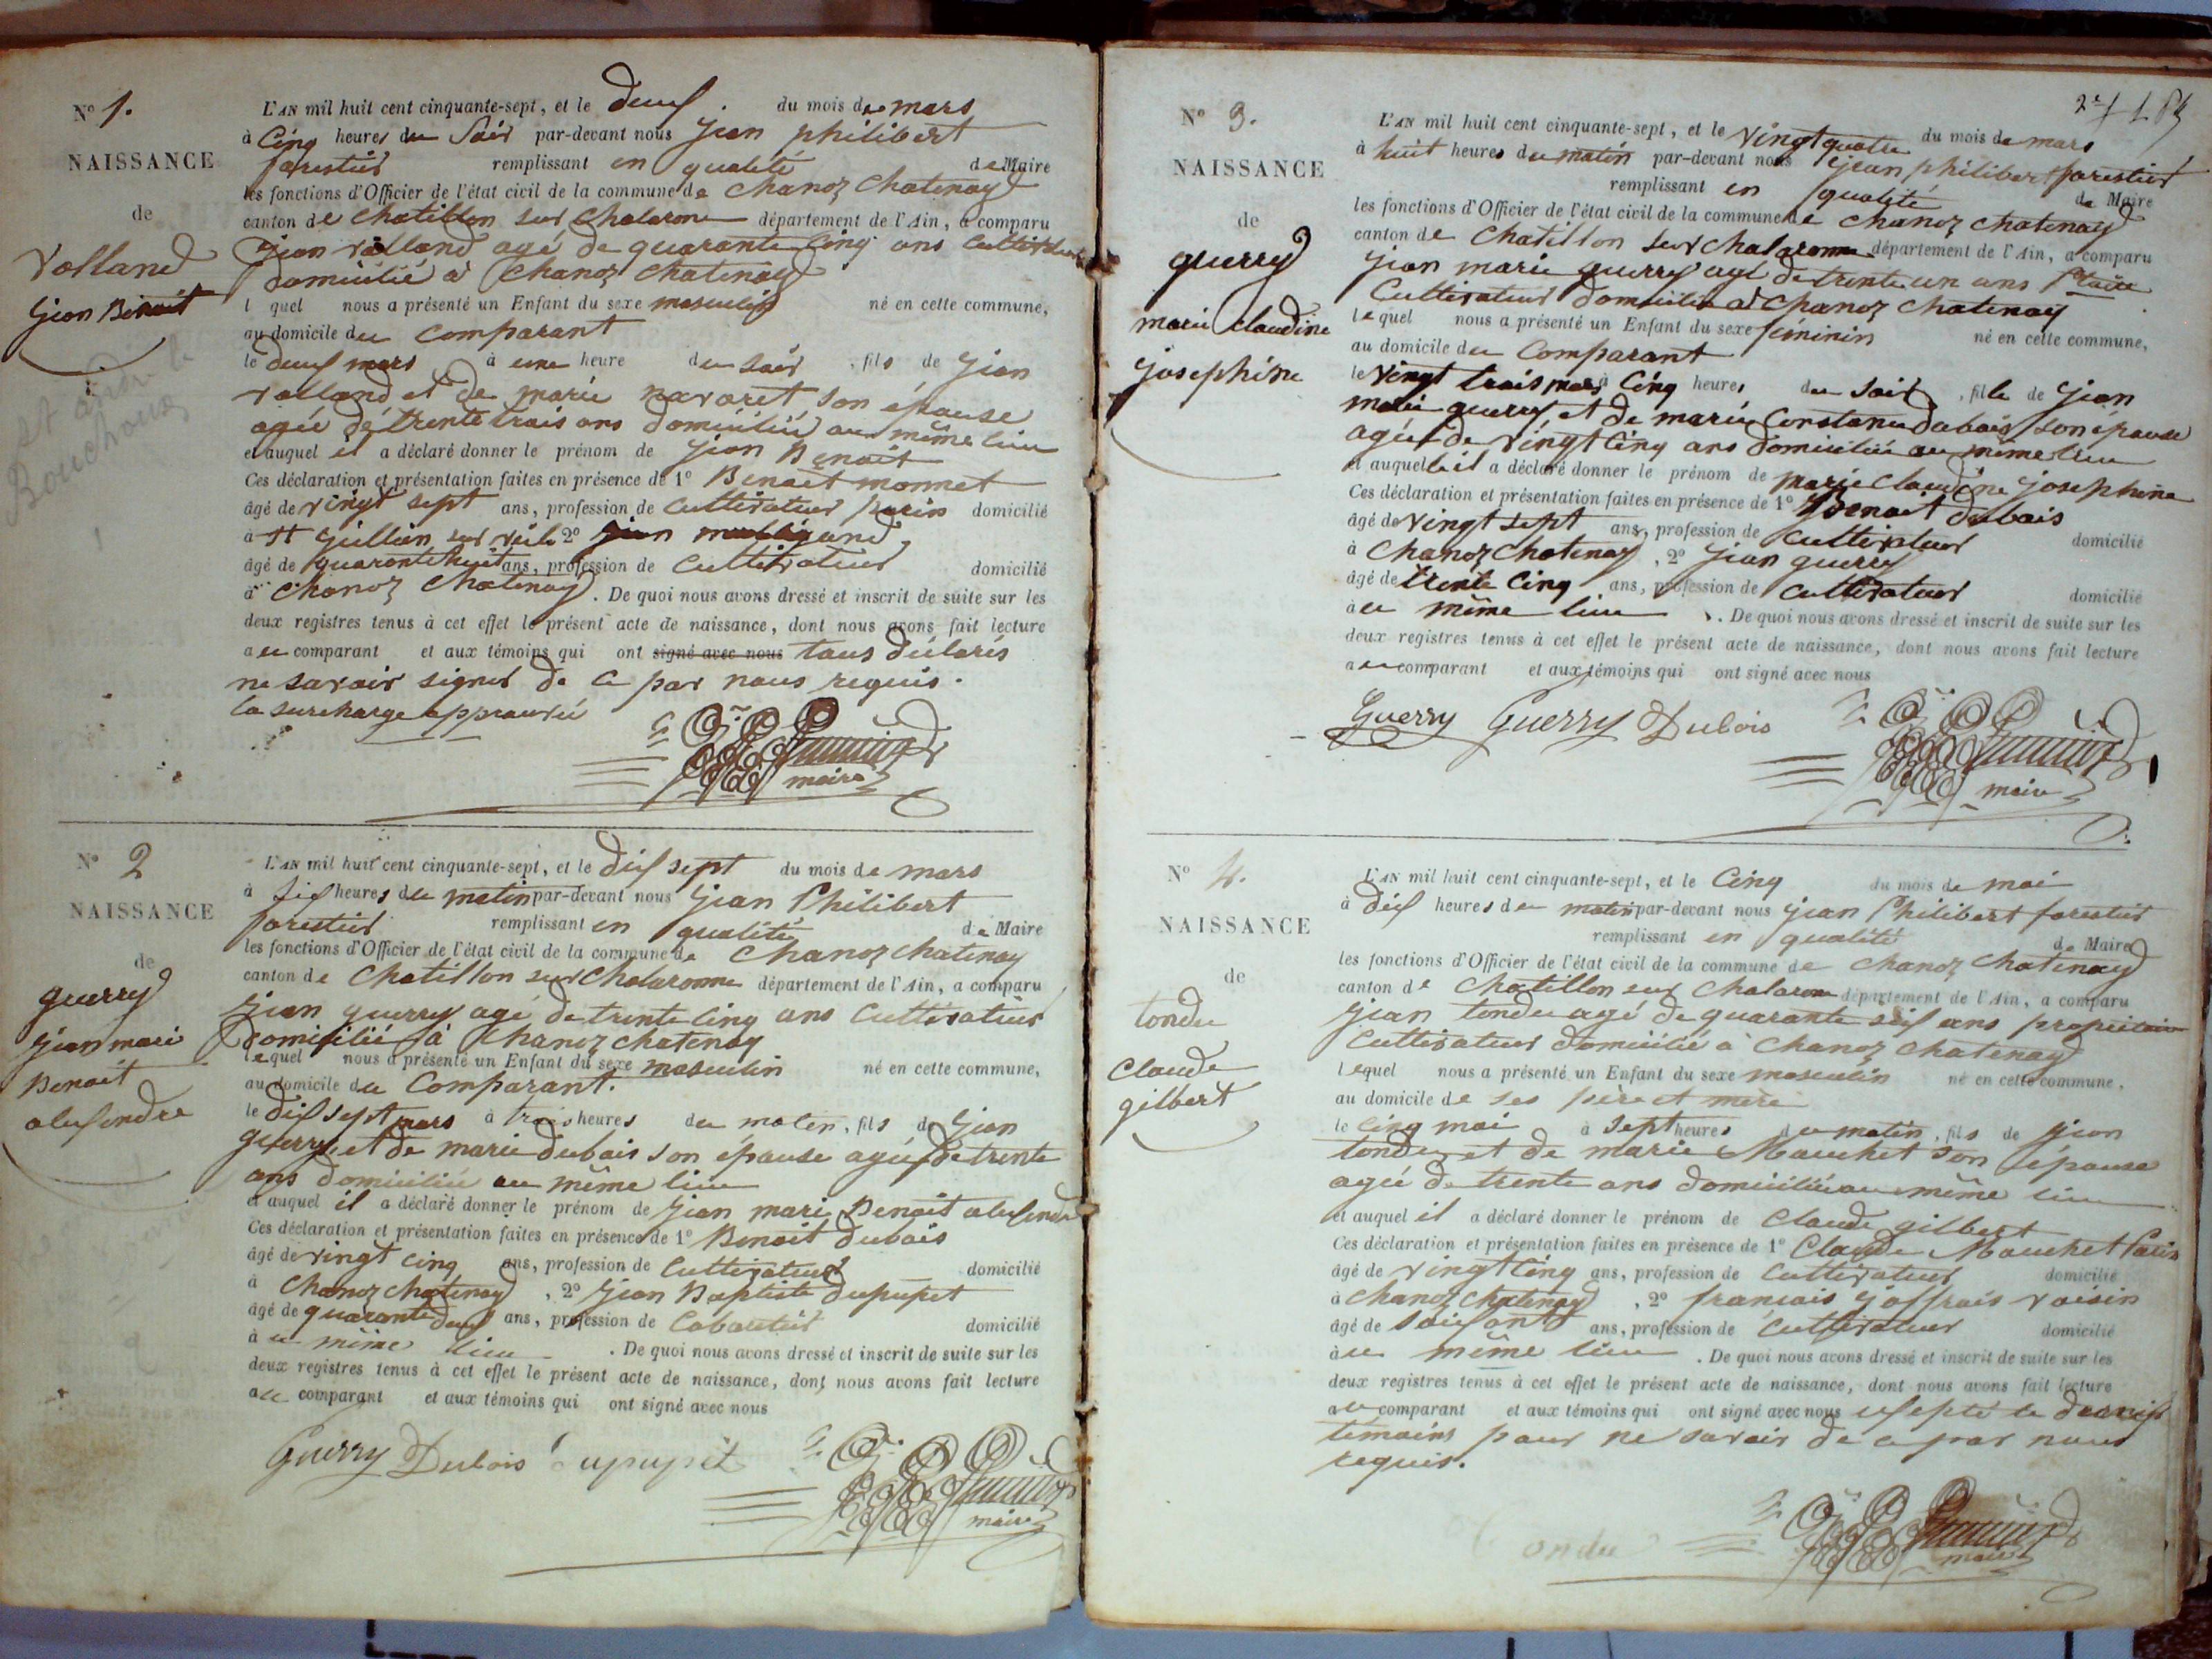 N° 1.
NAISSANCE
de
Volland
Jean Benoit
L'AN mil huit cent cinquante-sept, et le deux . du mois de mars
à Cinq heures du Soir par-devant nous Jean philibert
forestier remplissant en qualité de Maire
les fonctions d'Officier de l'état civil de la commune de Chanoz Chatenay
canton de Chatillon sur Chalaronne département de l'Ain, a comparu
Jean volland agé de quarante Cinq ans Cultivateur
domicilié à Chanoz Chatenay
l quel nous a présenté un Enfant du sexe masculin né en cette commune,
au domicile du Comparant
le deux mars à une heure du soir , fils de Jean
volland et de marie navaret son épouse
agée de trente trois ans domiciliée au même lieu
et auquel il a déclaré donner le prénom de Jean Benoit
Ces déclaration et présentation faites en présence de 1° Benoit monnet
âgé de vingt sept ans, profession de Cultivateur domicilié
à St Jullien sur veile 2° Jean
âgé de quarante huit ans, profession de Cultivateur domicilié
à Chanoz Chatenay . De quoi nous avons dressé et inscrit de suite sur les
deux registres tenus à cet effet le présent acte de naissance, dont nous avons fait lecture
au comparant et aux témoins qui ont signé avec nous tous déclarés
ne savoir signer de ce par nous requis.
la surcharge approuvée
maire
St andré le
Bouchoux
N° 2
NAISSANCE
de
guerry
Jean mari
Benoit
alexendre
L'AN mil huit cent cinquante-sept, et le dix sept du mois de mars
à Six heures du matin par-devant nous Jean Philibert
forestier remplissant en qualité de Maire
les fonctions d'Officier de l'état civil de la commune de Chanoz Chatenay
canton de Chatillon sur Chalaronne département de l'Ain, a comparu
Jean guerry agé de trente Cinq ans Cultivateur
domicilié à Chanoz Chatenay
lequel nous a présenté un Enfant du sexe masculin né en cette commune,
au domicile du Comparant.
le dix sept mars à trois heures du matin , fils de Jean
guerry et de marie dubois son épouse agée de trente
ans domiciliée au même lieu
et auquel il a déclaré donner le prénom de Jean mari Benoit alexendre
Ces déclaration et présentation faites en présence de 1° Benoit dubois
âgé de vingt cinq ans, profession de Cultivateur domicilié
à Chanoz Chatenay , 2° Jean Baptiste dupupet
âgé de quarante deux ans, profession de Cabaretier domicilié
à u même lieu . De quoi nous avons dressé et inscrit de suite sur les
deux registres tenus à cet effet le présent acte de naissance, dont nous avons fait lecture
au comparant et aux témoins qui ont signé avec nous
Guerry Dubois Dupupet
maire
N° 3.
NAISSANCE
de
guerry
marie Claudine
josephine
L'AN mil huit cent cinquante-sept, et le vingt quatre du mois de mars
à huit heures du matin par-devant nous Jean philibert forestier
remplissant en qualité de Maire
les fonctions d'Officier de l'état civil de la commune de Chanoz Chatenay
canton de Chatillon sur Chalaronne département de l'Ain, a comparu
Jean marie guerry agé de trente un ans
Cultivateur domicilié à Chanoz Chatenay
lequel nous a présenté un Enfant du sexe féminin né en cette commune,
au domicile du Comparant
le vingt trois mars à Cinq heures du soir , fille de Jean
marie guerry et de marie Constance dubois son épouse
agée de vingt Cinq ans domiciliée au même lieu
et auquelle il a déclaré donner le prénom de marie Claudine josephine
Ces déclaration et présentation faites en présence de 1° Benoit dubois
âgé de vingt sept ans, profession de Cultivateur domicilié
à Chanoz Chatenay , 2° Jean guerry
âgé de trente Cinq ans, profession de Cultivateur domicilié
à u même lieu . De quoi nous avons dressé et inscrit de suite sur les
deux registres tenus à cet effet le présent acte de naissance, dont nous avons fait lecture
au comparant et aux témoins qui ont signé avec nous
Guerry Guerry Dubois
maire
N° 4.
NAISSANCE
de
tondu
Claude
gilbert
L'AN mil huit cent cinquante-sept, et le Cinq du mois de mai
à dix heures du matin par-devant nous Jean Philibert forestier
remplissant en qualité de Maire
les fonctions d'Officier de l'état civil de la commune de Chanoz Chatenay
canton de Chatillon sur Chalaronne département de l'Ain, a comparu
Jean tondu agé de quarante six ans propriétaire
Cultivateur domicilié à Chanoz Chatenay
lequel nous a présenté un Enfant du sexe masculin né en cette commune,
au domicile de ses père et mere
le Cinq mai à sept heures du matin , fils de Jean
tondu et de marie Mouchet son épouse
agée de trente ans domiciliée au même lieu
et auquel il a déclaré donner le prénom de Claude gilbert
Ces déclaration et présentation faites en présence de 1° Claude Mouchet
âgé de vingt Cinq ans, profession de Cultivateur domicilié
à Chanoz Chatenay , 2° francois Joffrais voisin
âgé de soixante ans, profession de Cultivateur domicilié
à u même lieu . De quoi nous avons dressé et inscrit de suite sur les
deux registres tenus à cet effet le présent acte de naissance, dont nous avons fait lecture
au comparant et aux témoins qui ont signé avec nous excepté le dernier
témoins pour ne savoir de ce par nous
requis.
Tondu
maire